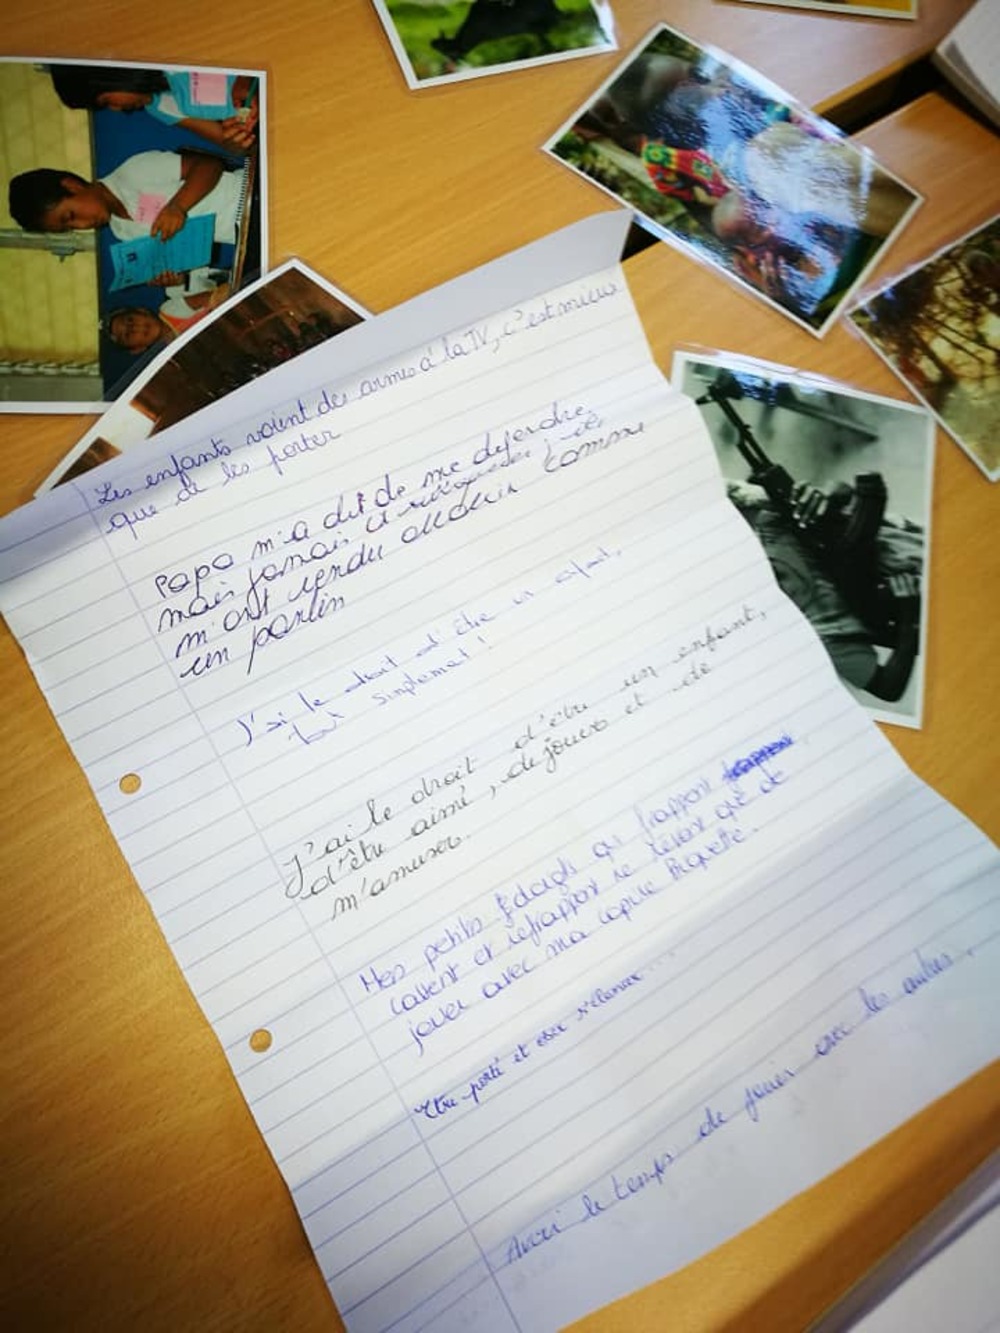 Les enfants voient des armes à la TV, c'est mieux
que de les porter
Papa m'a dit de me défendre
mais jamais ils
m'ont rendu comme
un pantin
J'ai le droit d'être un enfant,
tout simplement !
J'ai le droit d'être un enfant,
d'être aimé, de jouer et de
m'amuser.
Mes petits doigts qui frappent
lavent et refrappent ne rêvent que de
jouer avec ma copine Huguette.
Etre porté et oser s'élancer...
Avoir le temps de jouer avec les autres.